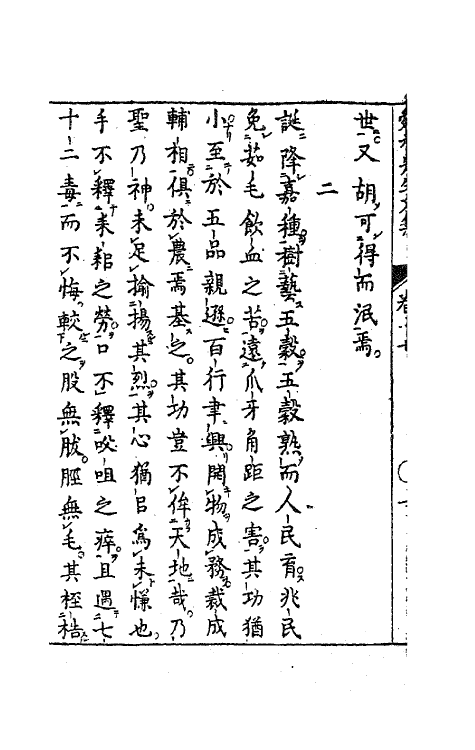 世又胡可得而泯焉。
二
誕降嘉種樹藝五穀五穀熟而人民育兆民
免茹毛飲血之苦遠爪牙角距之害其功猶
小至於五品親遜百行聿興開物成務裁成
輔相俱於農焉基之其功豈不侔天地哉乃
聖乃神未足揄揚其烈其心猶㠯爲未慊也
手不釋耒耜之勞口不釋咬咀之瘁且遇七
十二毒而不悔較之股無胈脛無毛其桎梏